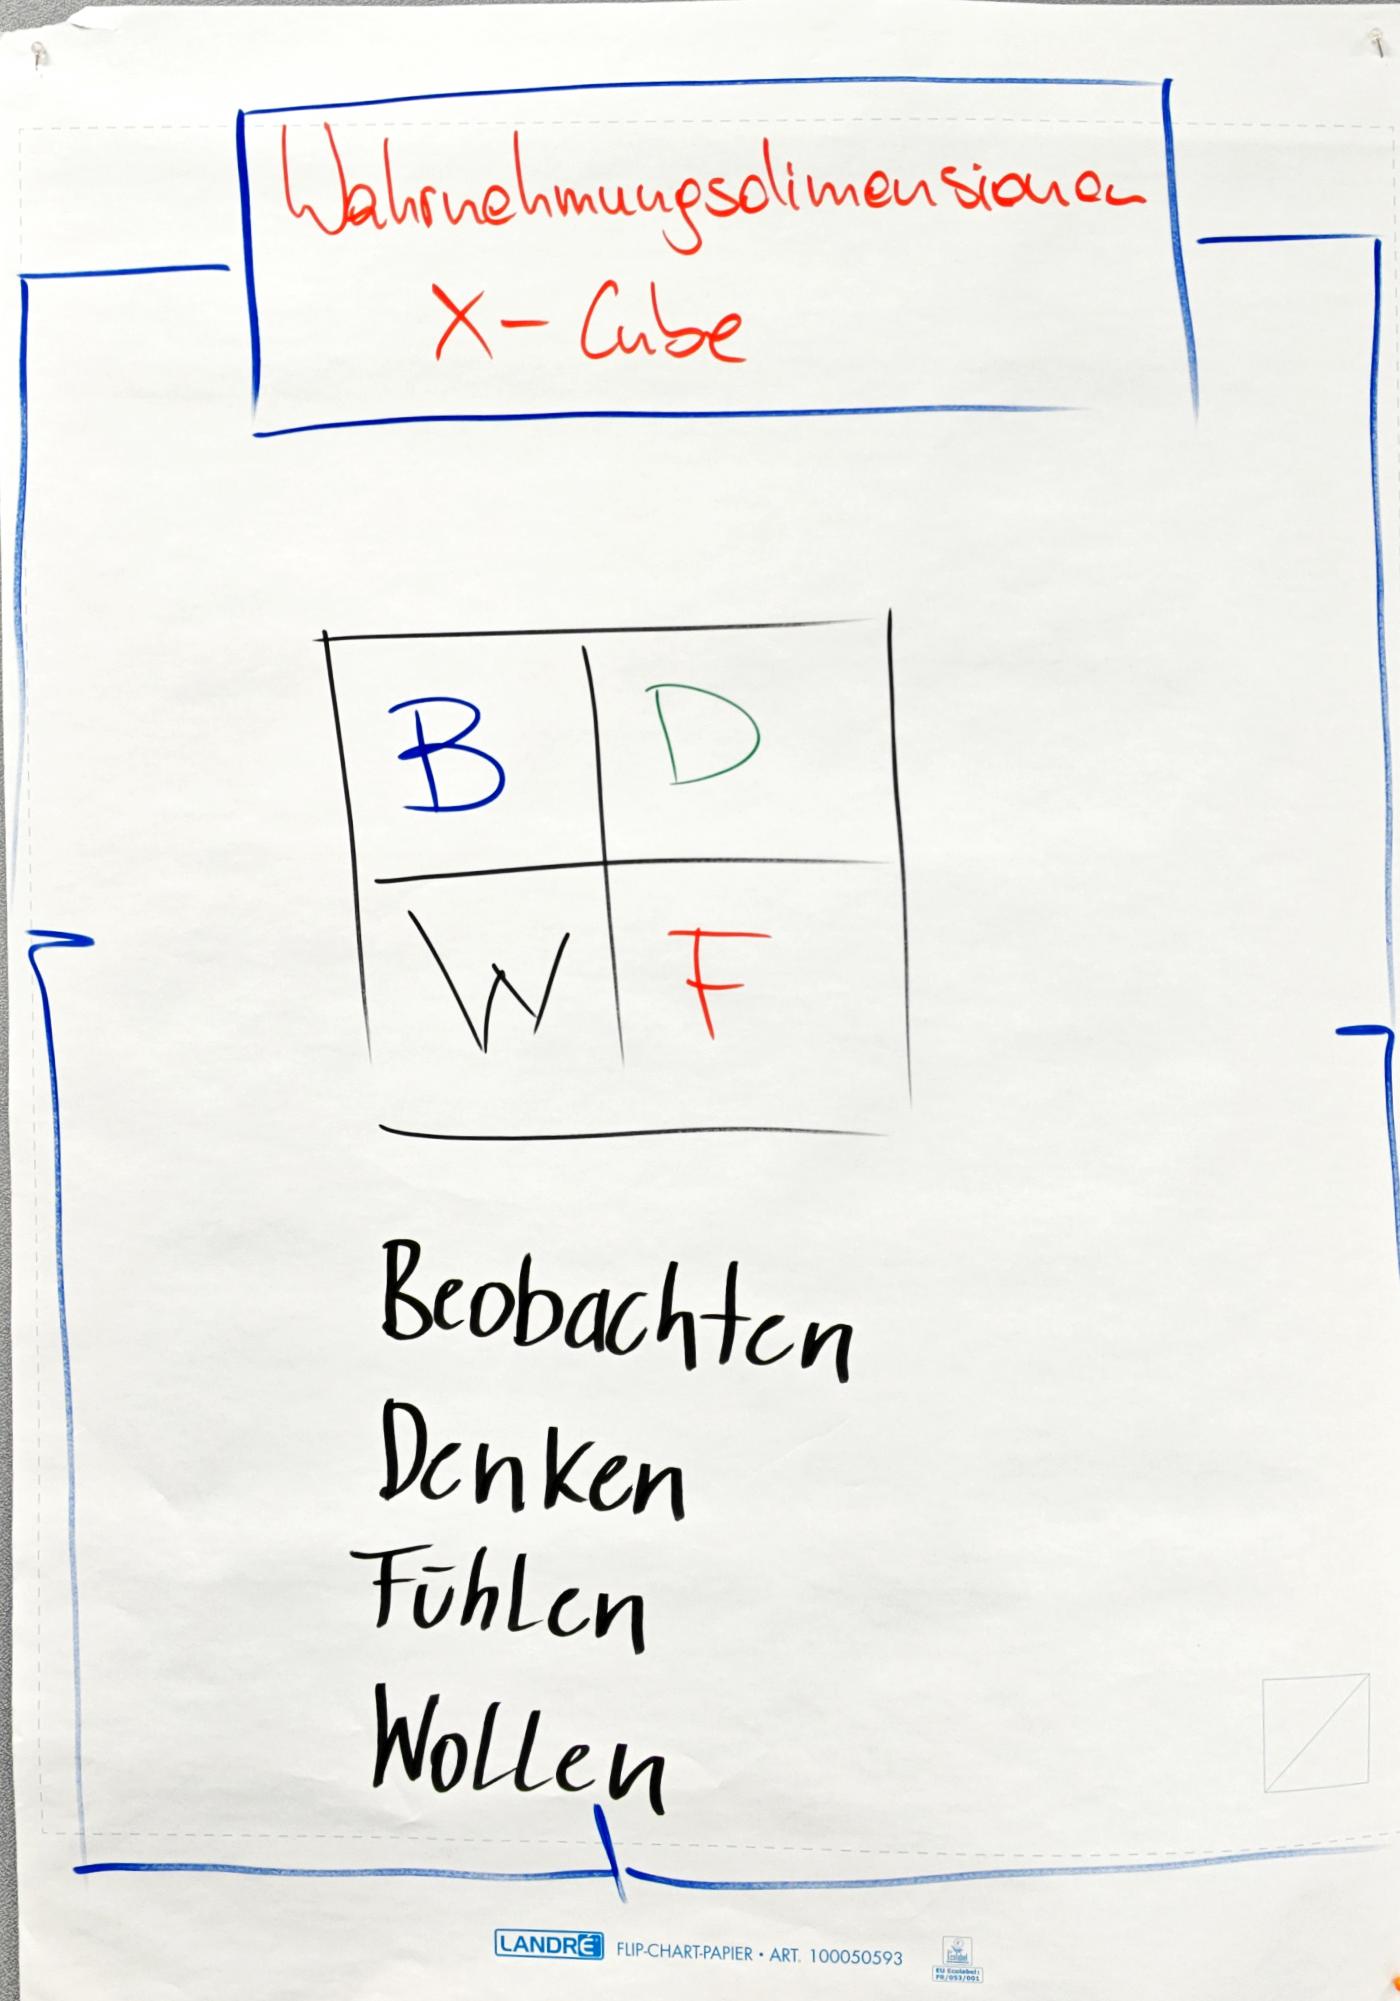 Wahrnehmungsdimensionen
X-Cube
B D
W F
Beobachten
Denken
Fühlen
Wollen
LANDRÉ FLIP-CHART-PAPIER • ART. 100050593
EU Ecolabel:
FR/053/001